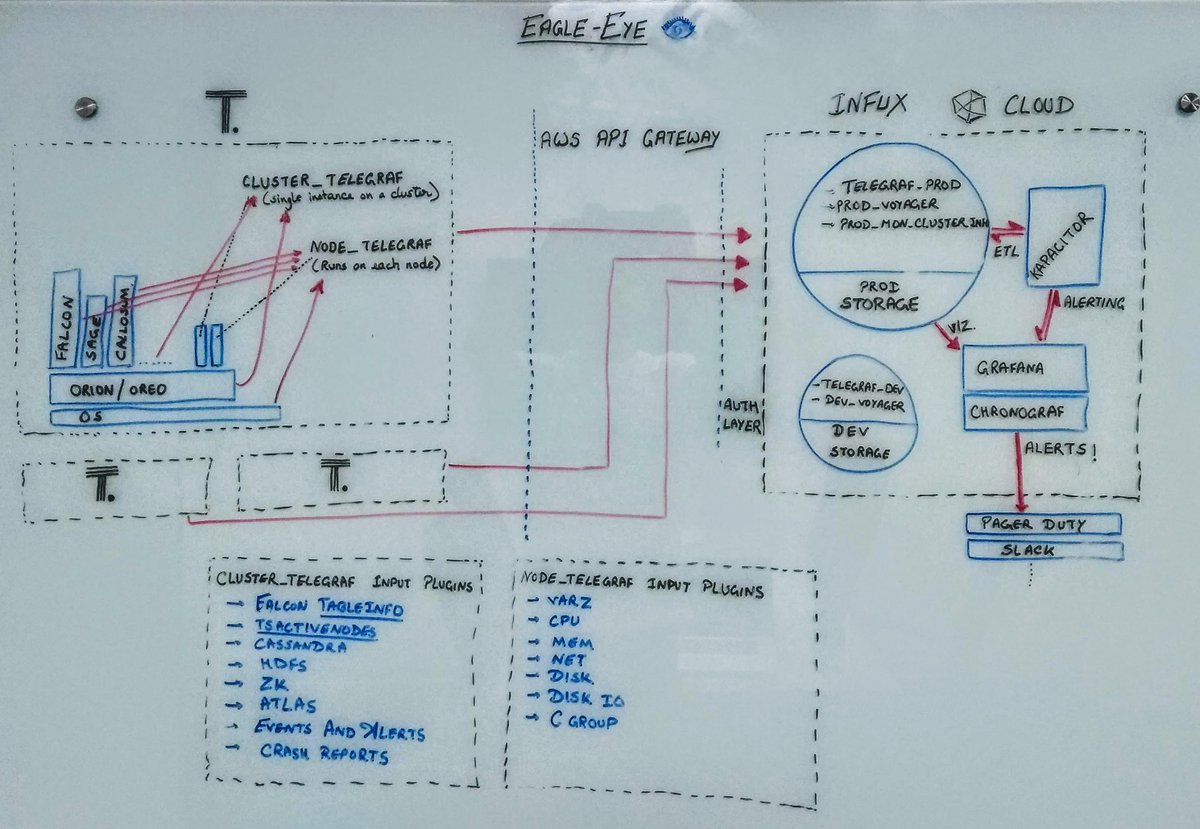 EAGLE-EYE
T.
CLUSTER_TELEGRAF
(single instance on a cluster)
NODE_TELEGRAF
(Runs on each node)
FALCON
SAGE
CALLOSUM
ORION/OREO
OS
T.
T.
AWS API GATEWAY
AUTH
LAYER
INFUX CLOUD
- TELEGRAF_PROD
→ PROD_VOYAGER
→ PROD_MON_CLUSTER INH
PROD
STORAGE
ETL
KAPACITOR
ALERTING
VIZ.
GRAFANA
CHRONOGRAF
- TELEGRAF_DEV
- DEV_VOYAGER
DEV
STORAGE
ALERTS!
PAGER DUTY
SLACK
CLUSTER_TELEGRAF INPUT PLUGINS
→ FALCON TABLEINFO
→ TSACTIVENODES
→ CASSANDRA
→ HDFS
→ ZK
→ ATLAS
→ EVENTS AND ALERTS
→ CRASH REPORTS
NODE_TELEGRAF INPUT PLUGINS
→ VARZ
→ CPU
→ MEM
→ NET
→ DISK
→ DISK IO
→ C GROUP